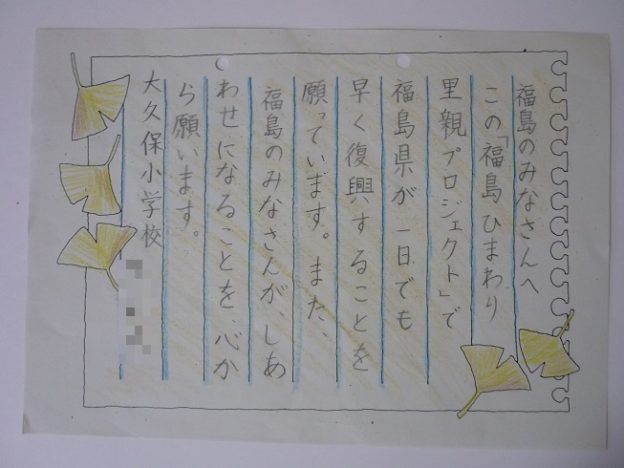 福島のみなさんへ
この「福島ひまわり
里親プロジェクト」で
福島県が一日でも
早く復興することを
願っています。また、
福島のみなさんが、しあ
わせになることを、心か
ら願います。
大久保小学校